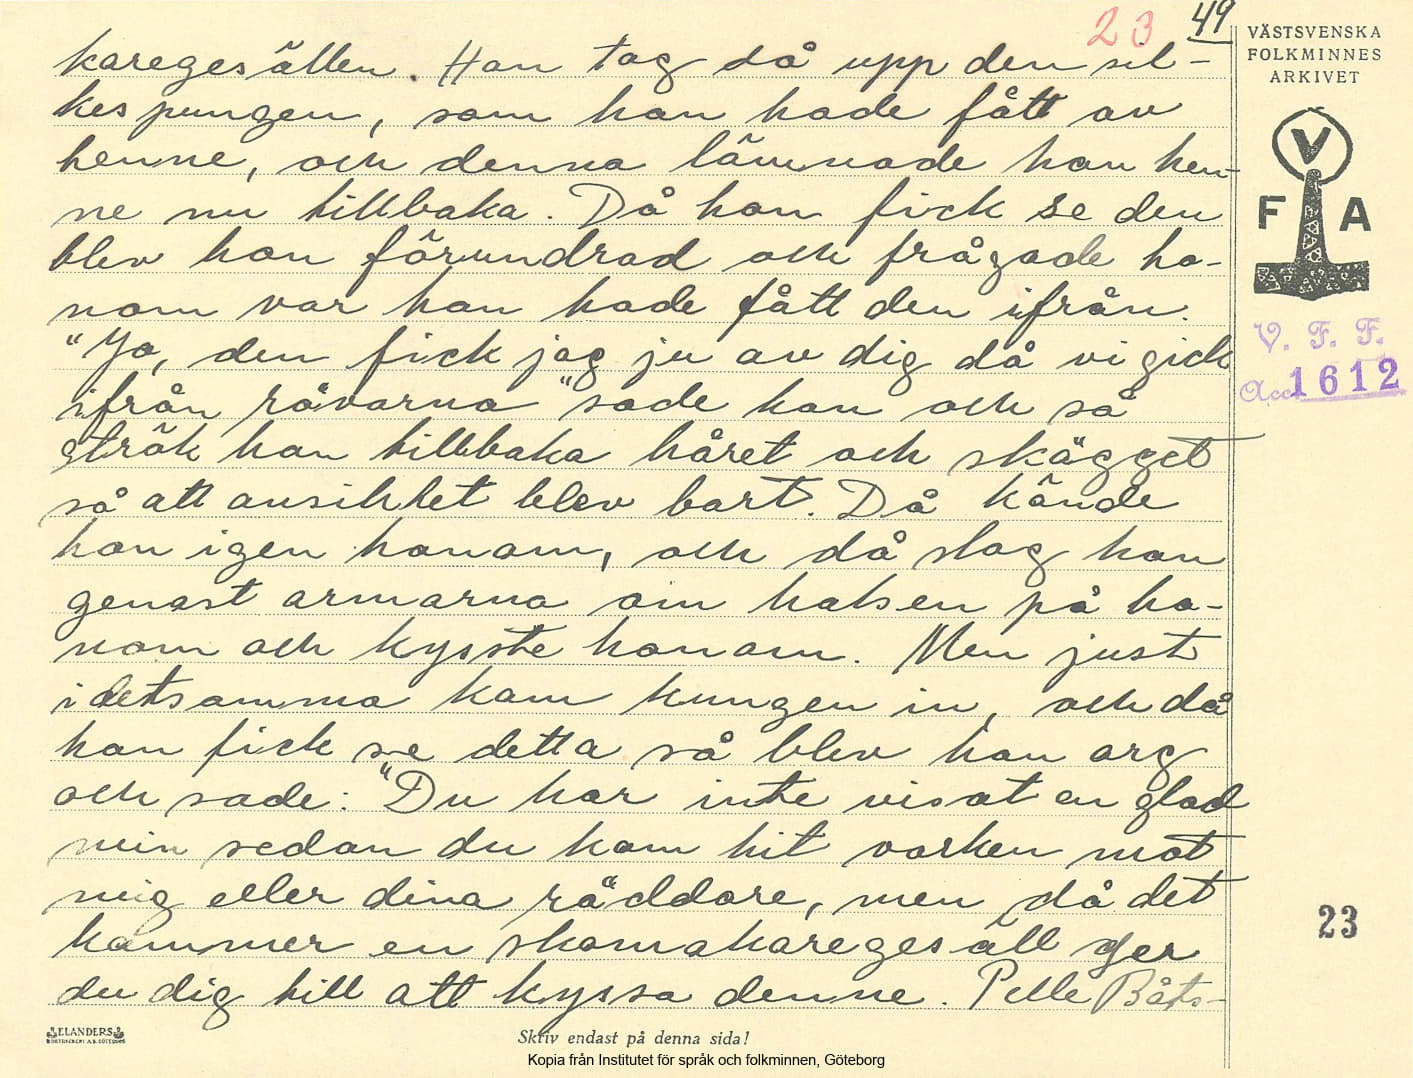 23 49
VÄSTSVENSKA
FOLKMINNES
ARKIVET
V
F A
V. F. F.
Acc 1612
karegesällen. Han tog då upp den sil-
kespungen, som han hade fått av
henne, och denna lämnade han hen-
ne nu tillbaka. Då hon fick se den
blev hon förundrad och frågade ho-
nom var han hade fått den ifrån.
"Ja, den fick jag ju av dig då vi gick
ifrån rövarna" sade han och så
strök han tillbaka håret och skägget
så att ansiktet blev bart. Då kände
hon igen honom, och då slog hon
genast armarna om halsen på ho-
nom och kysste honom. Men just
i detsamma kom kungen in, och då
han fick se detta så blev han arg
och sade: "Du har inte visat en glad
min sedan du kom hit varken mot
mig eller dina räddare, men då det
kommer en skomakaregesäll ger
du dig till att kyssa denne. Pelle Båts-
23
ELANDERS
BOKTRYCKERI A.B. GÖTEBORG
Skriv endast på denna sida!
Kopia från Institutet för språk och folkminnen, Göteborg